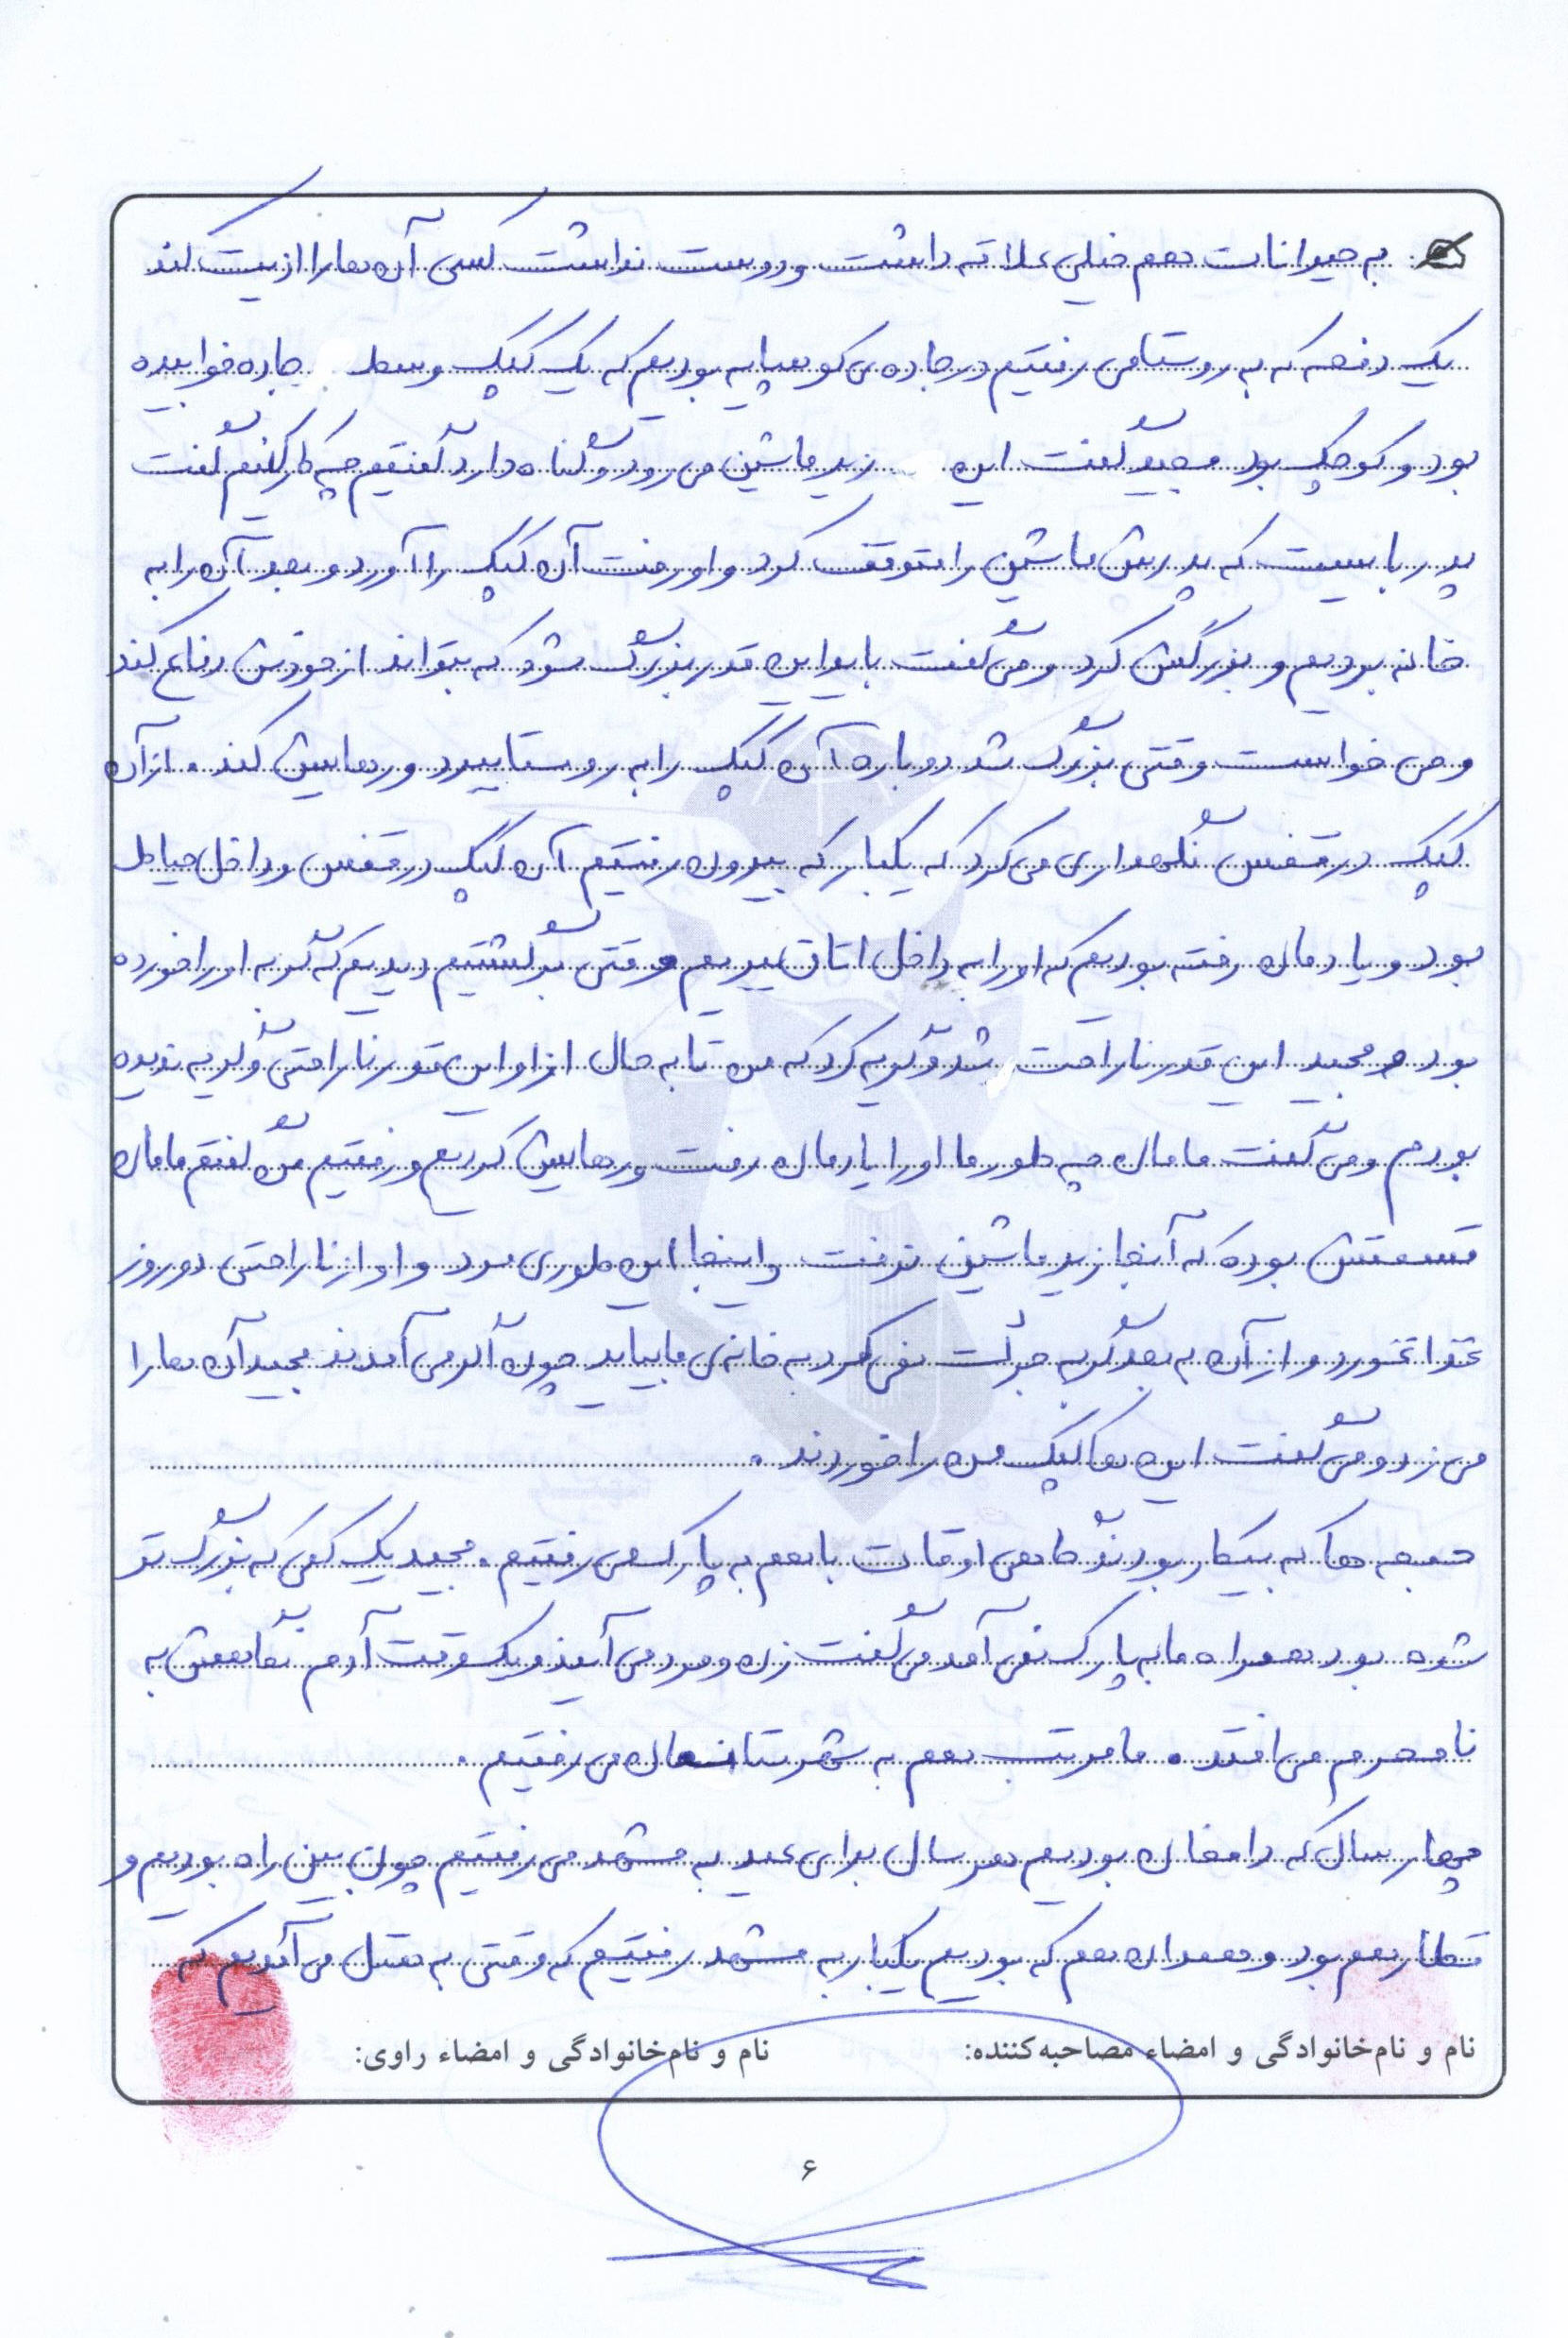 به حیوانات هم خیلی علاقه داشت و دوست نداشت کسی آن ها را اذیت کند
یک دفعه که به روستا می رفتیم در جاده ی کوهپایه بودیم که یک کبک وسط جاده خوابیده
بود و کوچک بود مجید گفت این زیر ماشین می رود و گناه دارد گفتیم چه کار کنیم گفت
پدر بایست که پدرش ماشین را متوقف کرد و او رفت آن کبک را آورد و بعد آن را به
خانه بردیم و بزرگش کرد و می گفت باید این قدر بزرگ شود که بتواند از خودش دفاع کند
و می خواست وقتی بزرگ شد دوباره آن کبک را به روستا ببرد و رهایش کند. از آن
کبک در قفس نگهداری می کرد که یکبار که بیرون رفتیم آن کبک در قفس و داخل حیاط
بود و یادمان رفته بودیم که او را به داخل اتاق ببریم وقتی برگشتیم دیدیم که گربه او را خورده
بود مجید این قدر ناراحت شد و گریه کرد که من تا به حال از او این قدر ناراحتی و گریه ندیده
بودم و می گفت مامان چه طور ما او را یادمان رفت و رهایش کردیم و رفتیم من گفتم مامان
قسمتش بوده که آنجا زیر ماشین نرفت و اینجا این طوری مرد و او از ناراحتی دو روز
غذا نخورد و از آن به بعد گربه جرأت نمی کرد به خانه ی ما بیاید چون اگر می آمدند مجید آن ها را
می زد و می گفت این ها کبک من را خوردند.
جمعه ها که بیکار بودند گاهی اوقات با هم به پارک می رفتیم. مجید یک کمی که بزرگ تر
شده بود همراه ما به پارک نمی آمد می گفت زن و مرد می آیند و یک وقت آدم نگاهش به
نامحرم می افتد. ما مرتب هم به شهرستانمان می رفتیم.
چهار سال که دامغان بودیم هر سال برای عید به مشهد می رفتیم چون بین راه بودیم و
قطار هم بود و همدان هم که بودیم یکبار به مشهد رفتیم که وقتی به هتل می آمدیم که
نام و نام‌خانوادگی و امضاء مصاحبه‌کننده: نام و نام‌خانوادگی و امضاء راوی:
۶